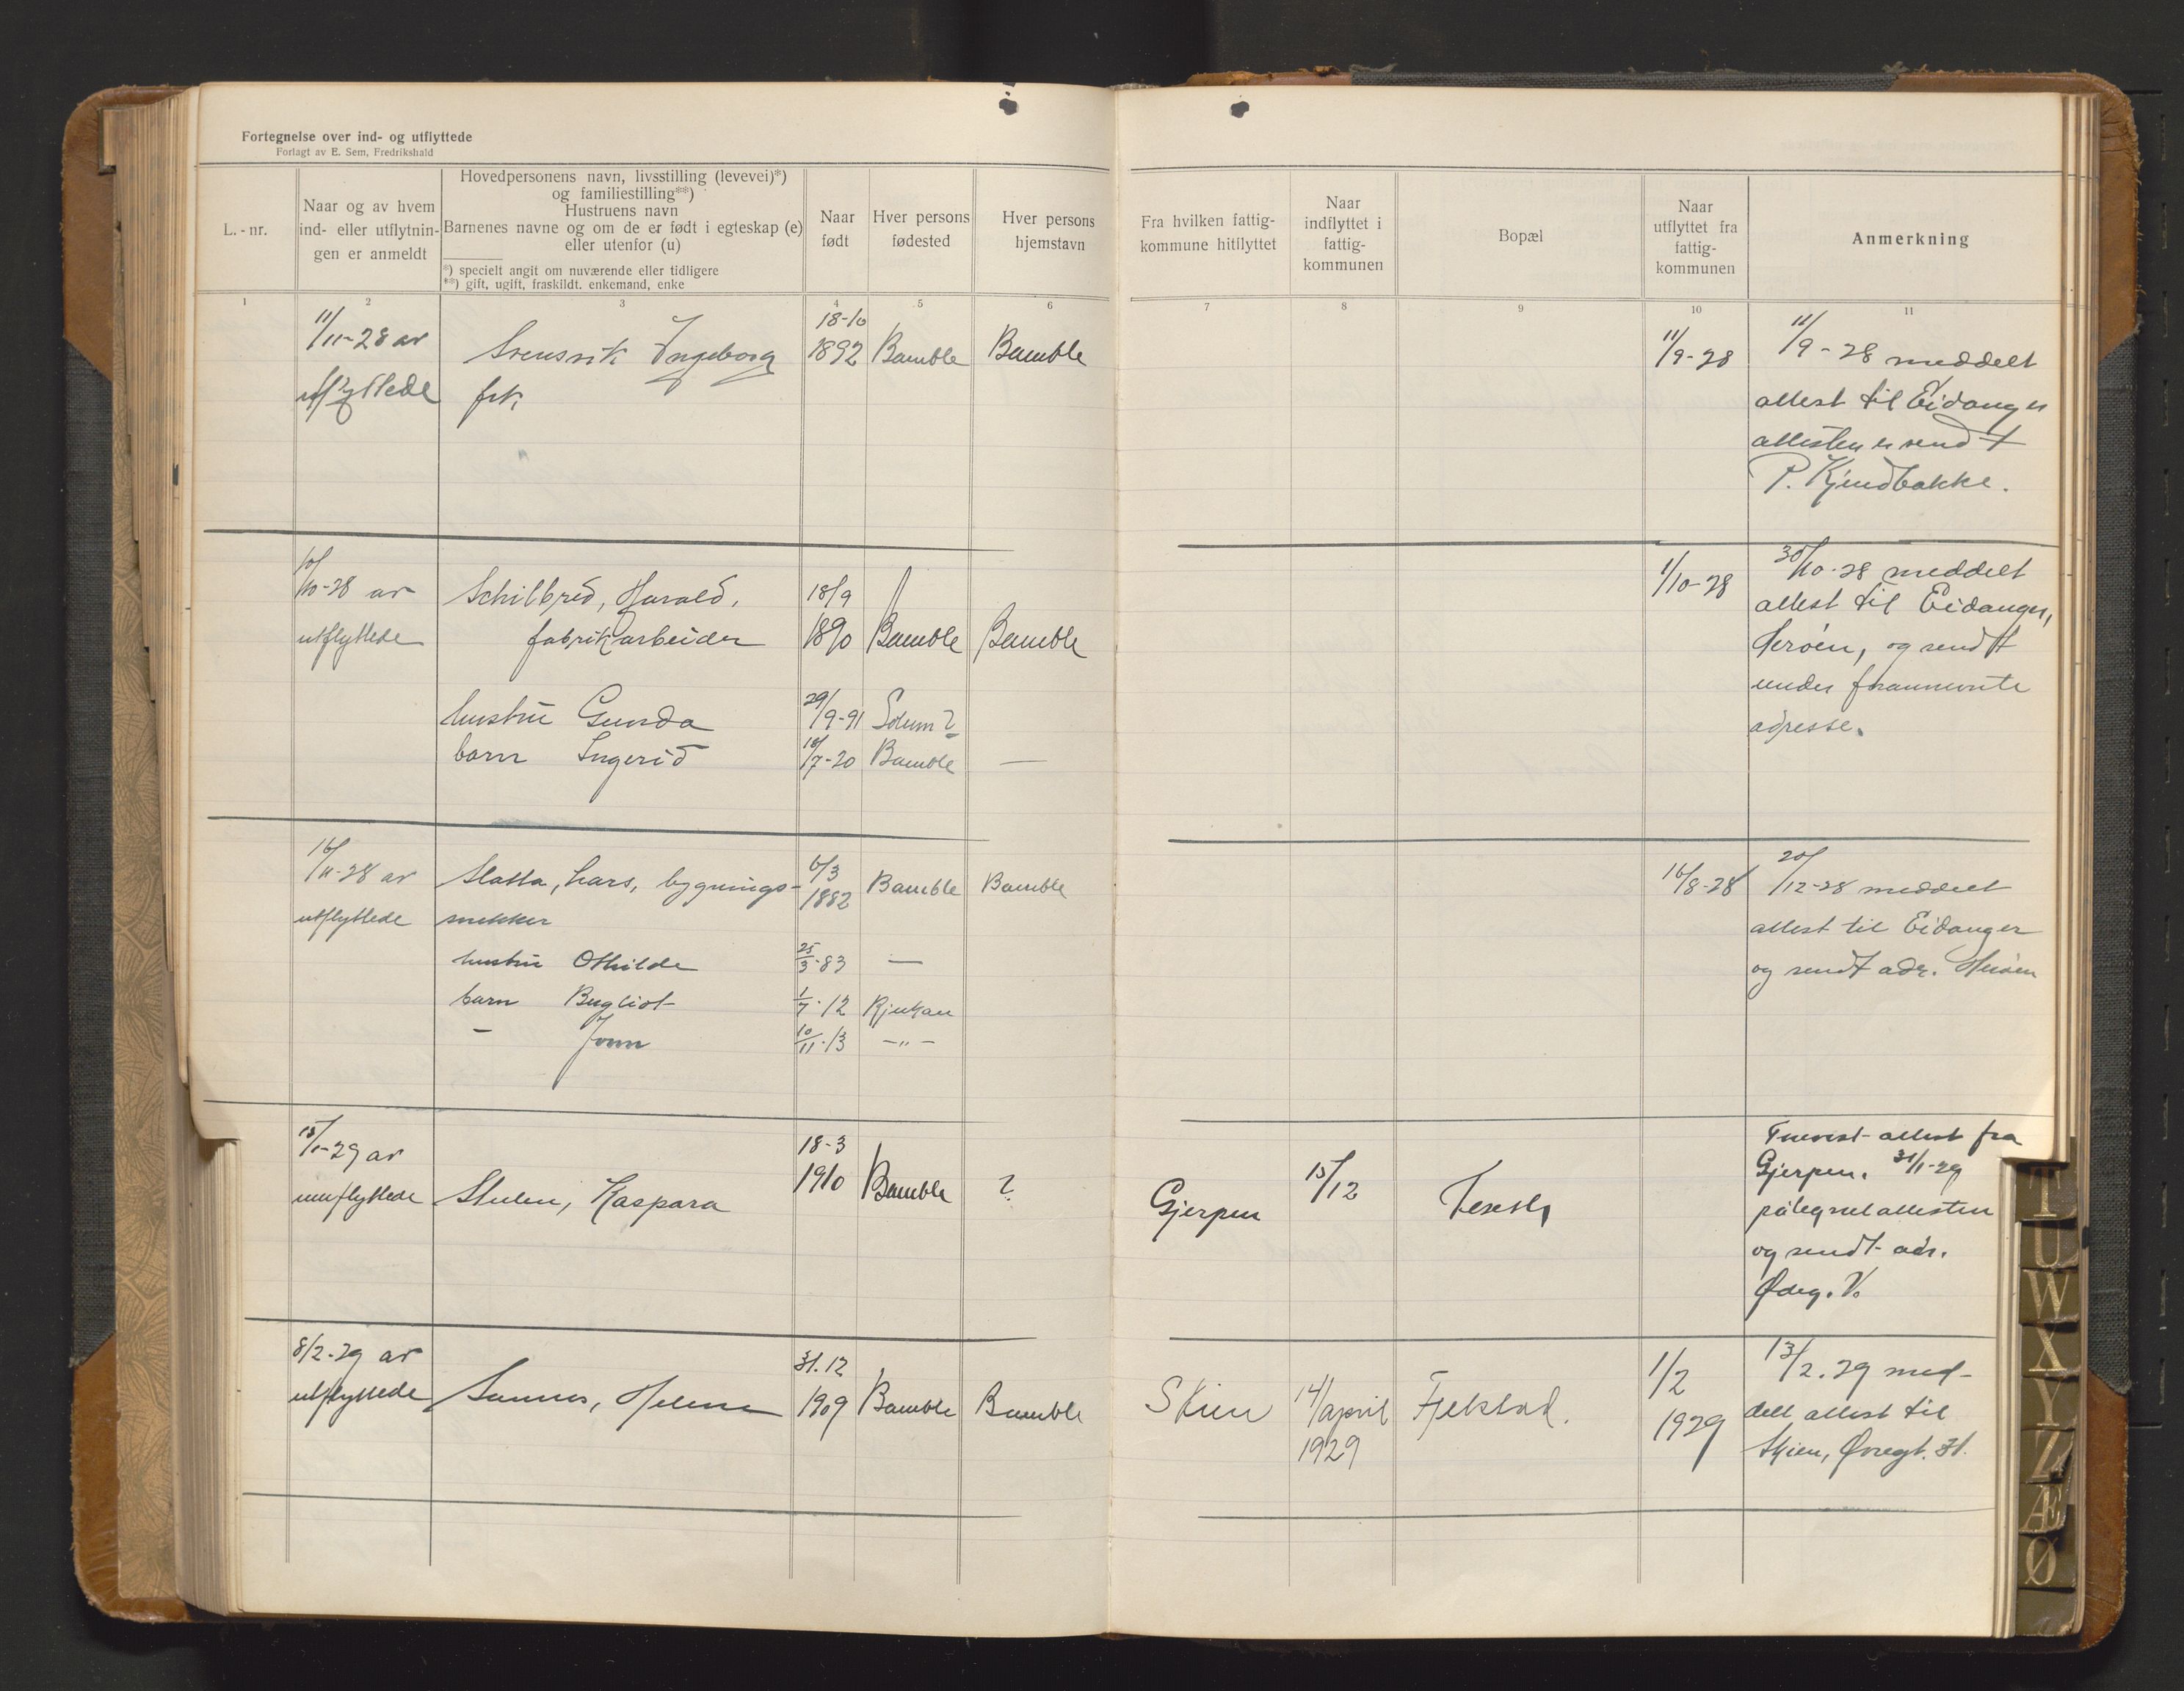 Fortegnelse over ind- og utflyttede
Forlagt av E. Sem, Fredrikshald
L.-nr.
Naar og av hvem
ind- eller utflytnin-
gen er anmeldt
Hovedpersonens navn, livsstilling (levevei)*)
og familiestilling**)
Hustruens navn
Barnenes navne og om de er født i egteskap (e)
eller utenfor (u)
*) specielt angit om nuværende eller tidligere
**) gift, ugift, fraskildt, enkemand, enke
Naar
født
Hver persons
fødested
Hver persons
hjemstavn
Fra hvilken fattig-
kommune hitflyttet
Naar
indflyttet i
fattig-
kommunen
Bopæl
Naar
utflyttet fra
fattig-
kommunen
Anmerkning
1 2 3 4 5 6 7 8 9 10 11
11/11-28 av
utflyttede
Svensvik Ingeborg
frk.
18-10
1892
Bamble
Bamble
11/9-28
11/9-28 meddelt
attest til Eidanger
attesten er sendt
P. Kjendbakke.
10/10-28 av
utflyttede
Schilbred, Harald,
fabrikarbeider
18/9
1890
Bamble
Bamble
hustru Gunda
29/9-91
Solum ?
barn Ingerid
18/7-20
Bamble
—
1/10-28
30/10-28 meddelt
attest til Eidanger,
Herøen, og sendt
under forannevnte
adresse.
16/11-28 av
utflyttede
Slatta, Lars, bygnings-
snekker
6/3
1882
Bamble
Bamble
hustru Othilde
25/3-83
—
barn Bergliot
1/7-12
Rjukan
- Jonn
10/11-13
-"-
16/8-28
20/12-28 meddelt
attest til Eidanger
og sendt adr. Herøen
15/1-29 av
innflyttede
Stulen, Kaspara
18-3
1910
Bamble
?
Gjerpen
15/12
attest fra
Gjerpen. 31/1-29
påtegnet attesten
og sendt adr.
Ødeg. V.
8/2-29 av
utflyttede
Sannes, Helene
31.12
1909
Bamble
Bamble
Skien
14/april
1929
Fjelstad.
1/2
1929
13/2.29 med-
delt attest til
Skien, Øvregt. 31.
T
U
W
X
Y
Z
Æ
Ø